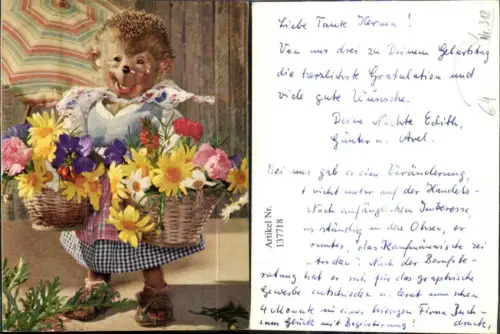 Liebe Tante Herma!
Von uns drei zu Deinem Geburtstag
die herzlichste Gratulation und
viele gute Wünsche.
Deine Nichte Edith,
Günter u. Axel.
Bei uns gab es eine Veränderung,
nicht mehr auf der Handels-
Nach anfänglichem Interesse,
ständig in den Ohren, er
"das Kaufmännische sei
trocken". Nach der Berufsbe-
ratung hat er sich für das graphische
Gewerbe entschieden u. lernt nun schon
4 Monate in einer hiesigen Firma Buch-
druck.
zum Glück mit Begeisterung!
Artikel Nr.
137718
64